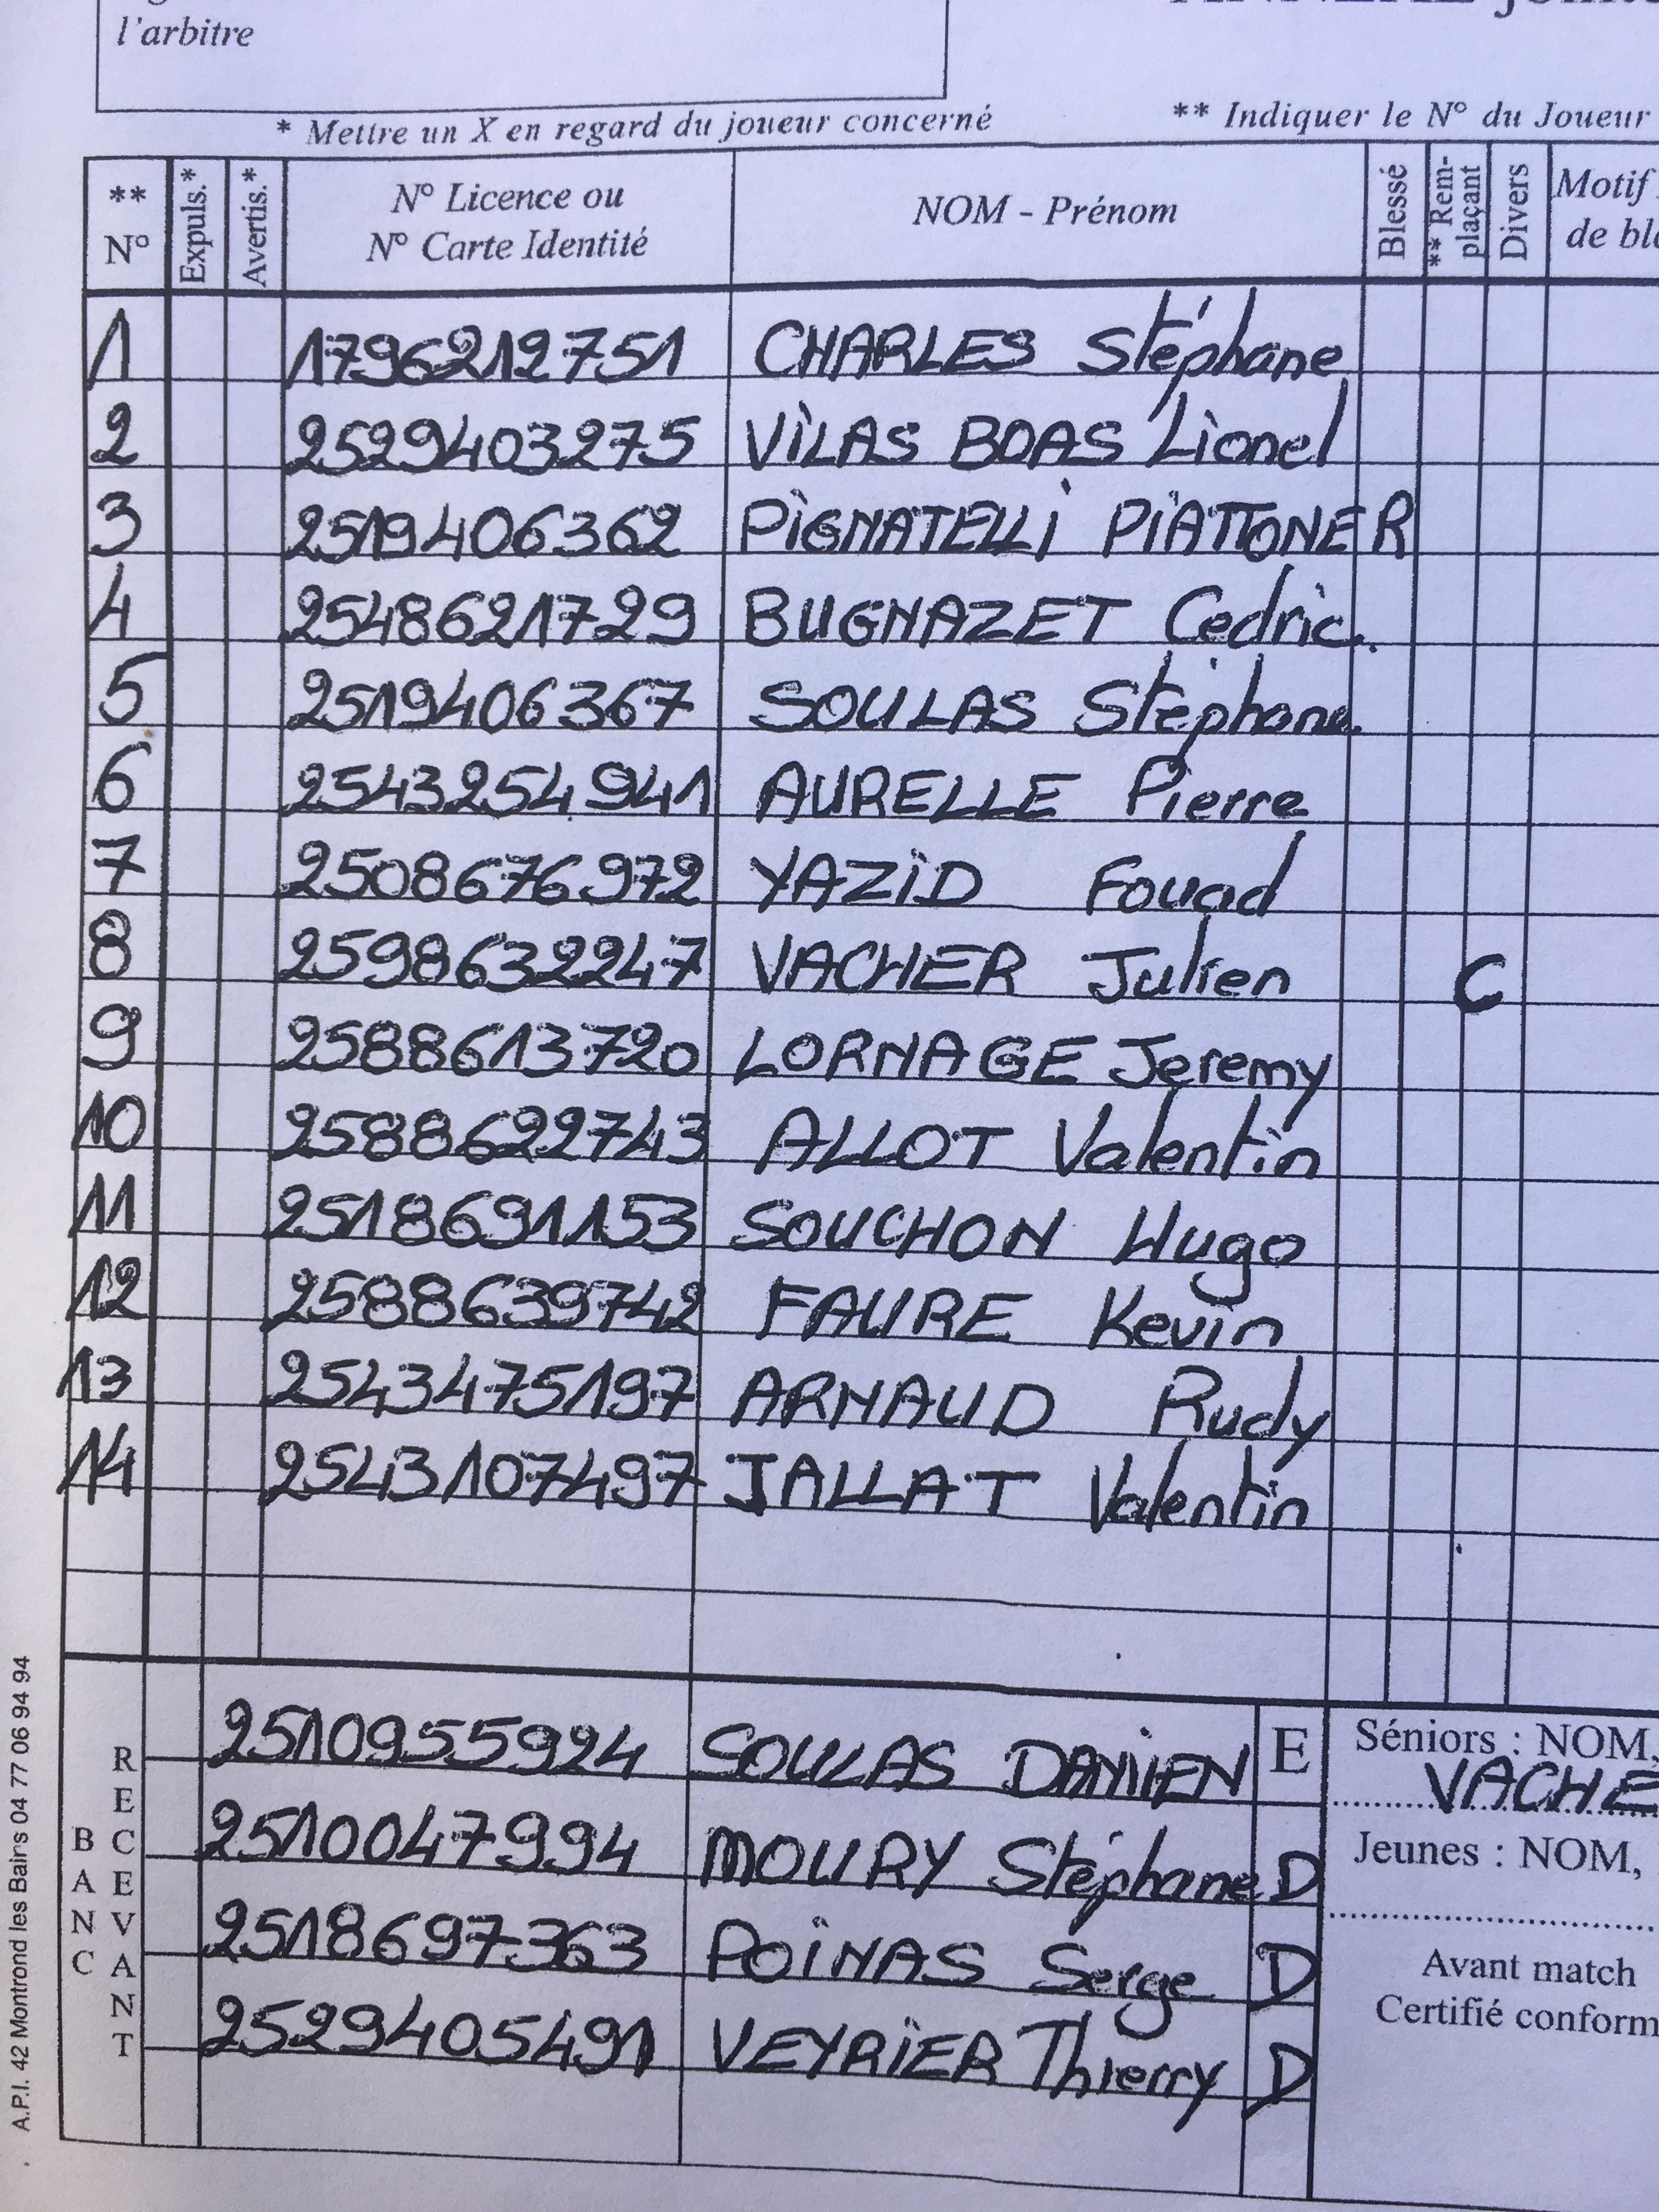 l'arbitre
* Mettre un X en regard du joueur concerné
** Indiquer le N° du Joueur
** N° Expuls.* Avertis.* N° Licence ou N° Carte Identité NOM - Prénom Blessé ** Rem-plaçant Divers Motif de
1 1796212751 CHARLES Stéphane
2 2529403275 VILAS BOAS Lionel
3 2519406362 PIGNATELLI PIATTONER
4 2548621729 BUGNAZET Cedric.
5 2519406367 SOULAS Stéphane
6 2543254941 AURELLE Pierre
7 2508676972 YAZID Fouad
8 2598632247 VACHER Julien C
9 2588613720 LORNAGE Jeremy
10 2588622743 ALLOT Valentin
11 2518691153 SOUCHON Hugo
12 2588639742 FAURE Kevin
13 2543475197 ARNAUD Rudy
14 2543107497 JALLAT Valentin
BANC RECEVANT
2510955924 SOULAS DAMIEN E
2510047994 MOURY Stéphane D
2518697363 POINAS Serge D
2529405491 VEYRIER Thierry D
Séniors : NOM,
VACHE
Jeunes : NOM,
Avant match
Certifié conform
A.P.I. 42 Montrond les Bains 04 77 06 94 94